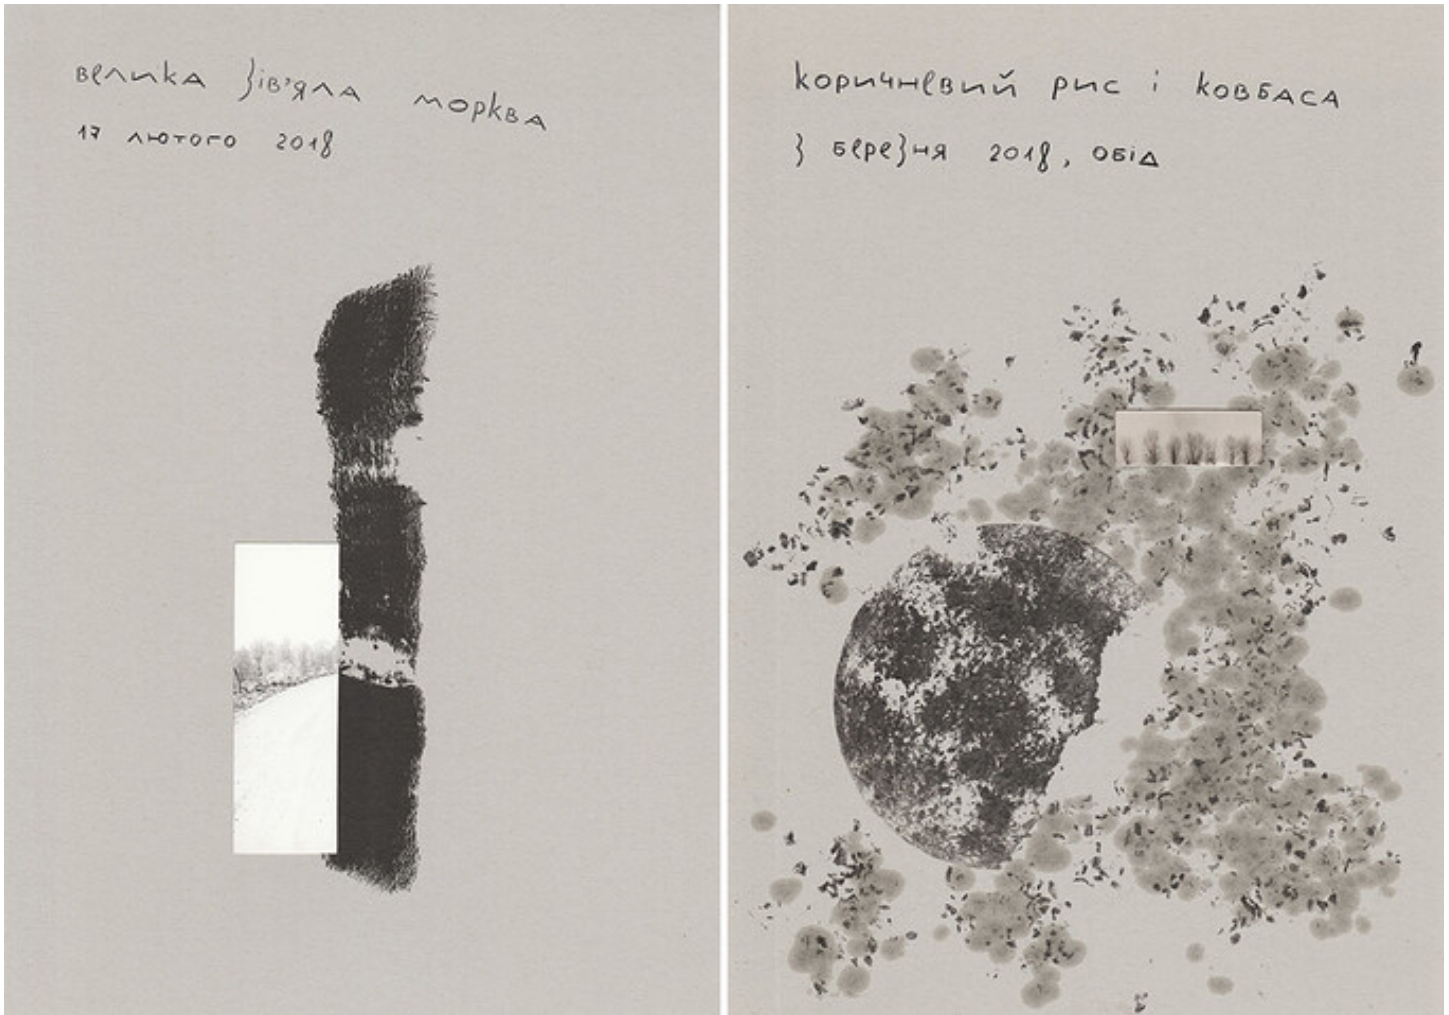 велика зів'яла морква
17 лютого 2018
коричневий рис і ковбаса
3 березня 2018, обід